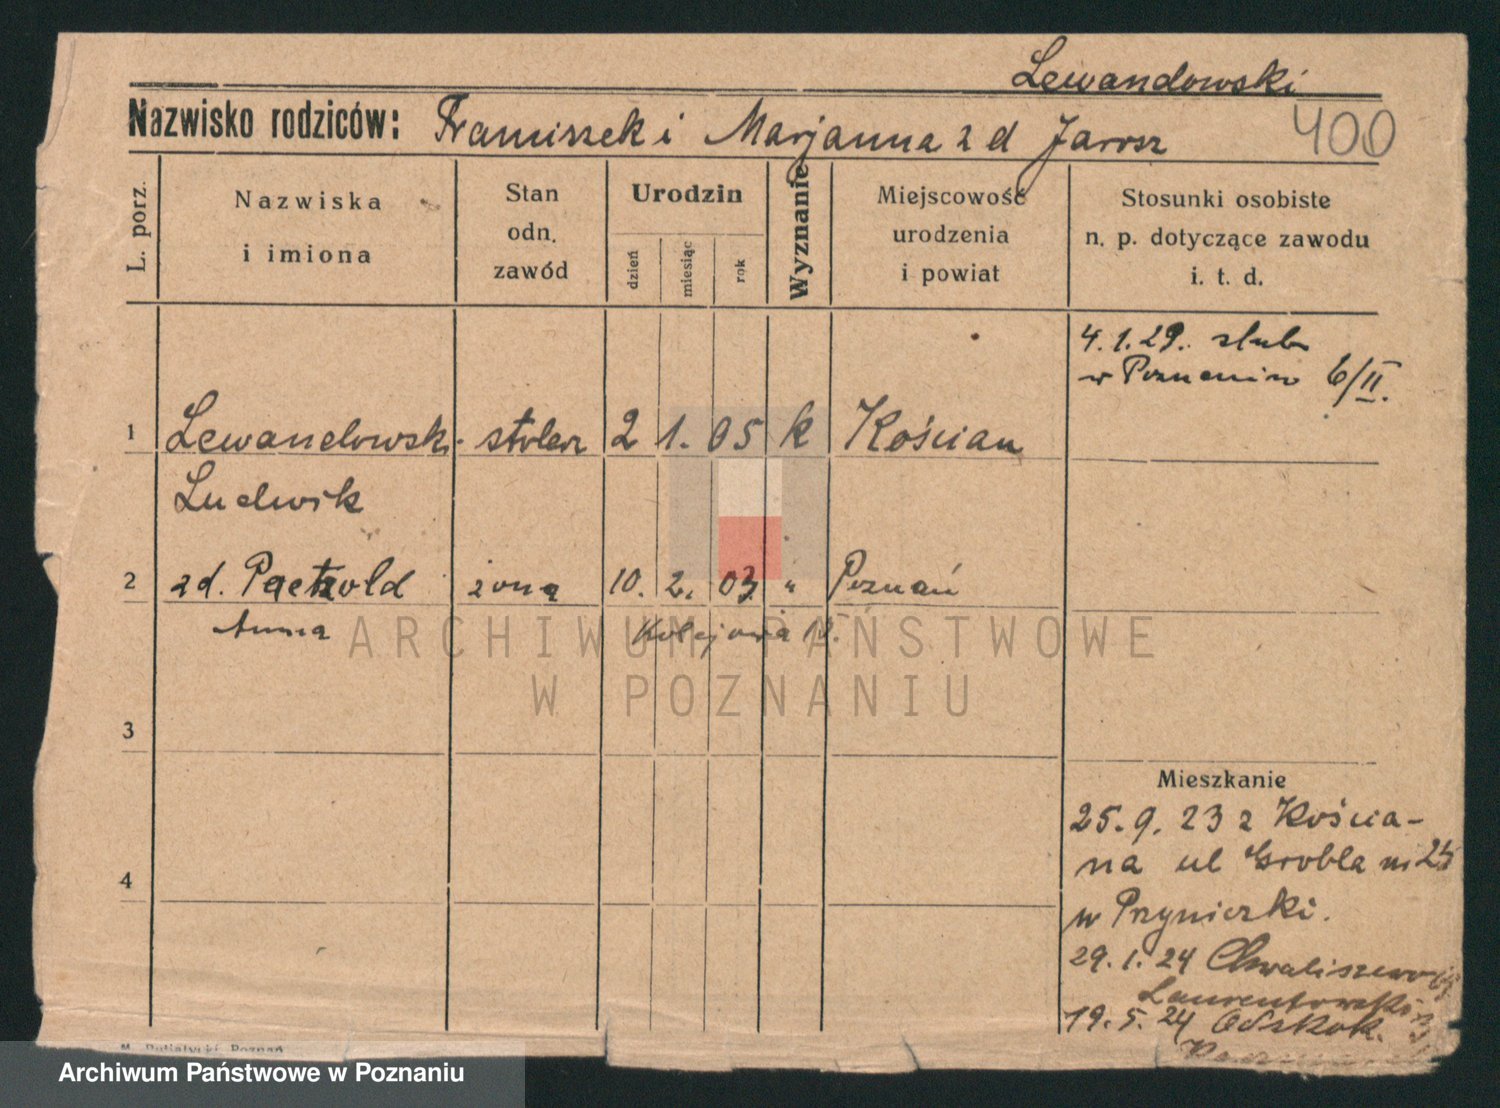 Lewandowski
Nazwisko rodziców: Franciszek i Marjanna z d Jarosz
400
L. porz.
Nazwiska i imiona
Stan odn. zawód
Urodzin
dzień
miesiąc
rok
Wyznanie
Miejscowość urodzenia i powiat
Stosunki osobiste n. p. dotyczące zawodu i. t. d.
4.1.29. ślub
w Poznaniu 6/II.
1 Lewandowski stolarz 2 1. 05 k Kościan
Ludwik
2 zd. Paetzold żona 10. 2. 03 " Poznań
Anna Kolejowa
ARCHIWUM PAŃSTWOWE
W POZNANIU
3
Mieszkanie
25.9.23 z Kościa-
na ul Grobla nr 25
w Przyniczki.
4
29.1.24 Chwaliszewo
Laurentowski
19.5.24 Odskok.
Archiwum Państwowe w Poznaniu